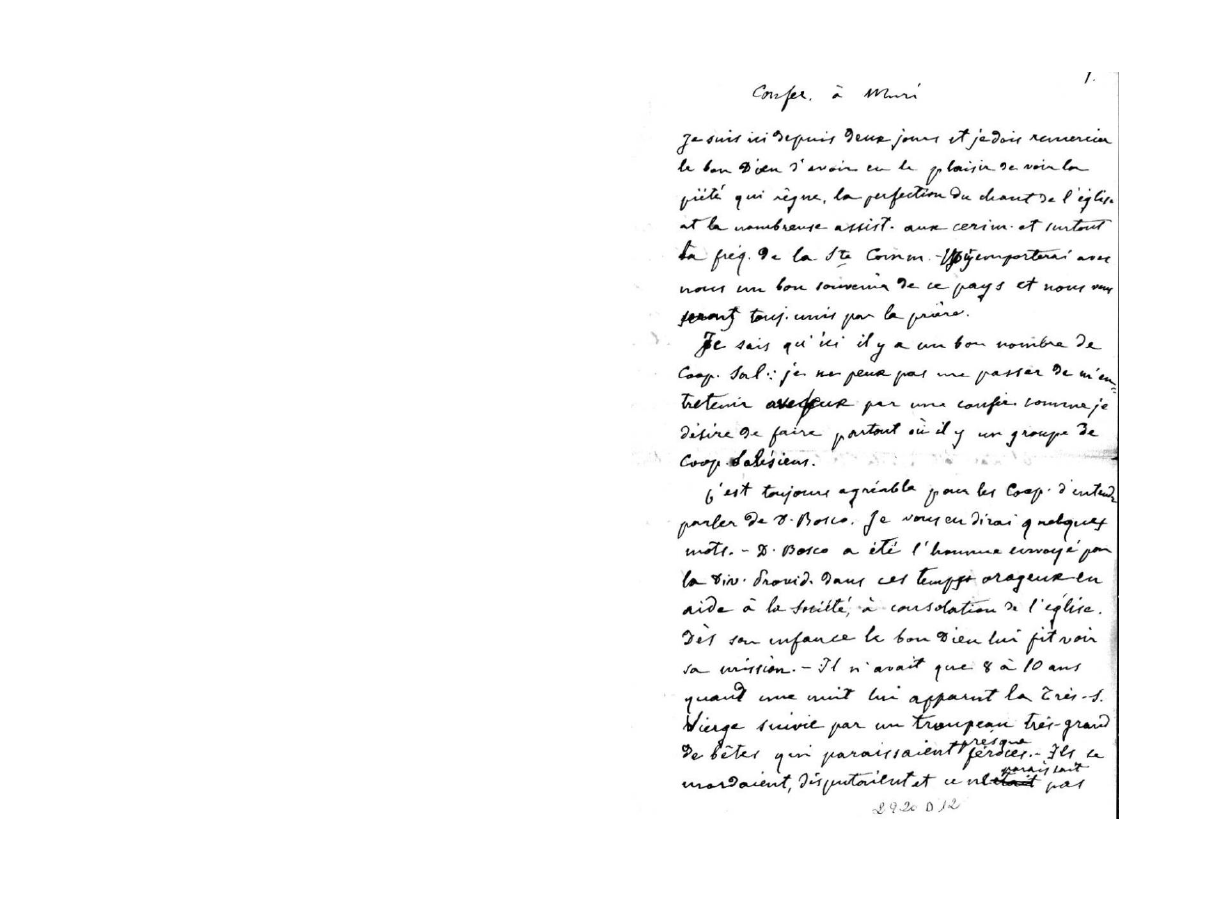 1.
Confer. à Muri
Je suis ici depuis deux jours et je dois remercier
le bon Dieu d'avoir eu le plaisir de voir la
piété qui règne, la perfection du chant de l'église
et la nombreuse assist. aux cerim. et surtout
la fréq. de la Ste Comm. - emporterai avec
nous un bon souvenir de ce pays et nous
touj. unis par la prière.
Je sais qu'ici il y a un bon nombre de
Coop. Sal.: je ne peux pas me passer de m'en-
tretenir avec eux par une confer. comme je
désire de faire partout où il y un groupe de
Coop. Salésiens.
C'est toujours agréable pour les Coop. d'entendr
parler de D. Bosco. Je vous en dirai quelques
mots. - D. Bosco a été l'homme envoyé par
la Div. Provid. dans ces temps orageux en
aide à la Société, à consolation de l'église.
Dès son enfance le bon Dieu lui fit voir
sa mission. - Il n'avait que 8 à 10 ans
quand une nuit lui apparut la Très-S.
Vierge suivie par un troupeau très-grand
de bêtes qui paraissaient presque féroces. - Ils se
mordaient, disputaient et ce n'était paraissait pas
29.20 D 12